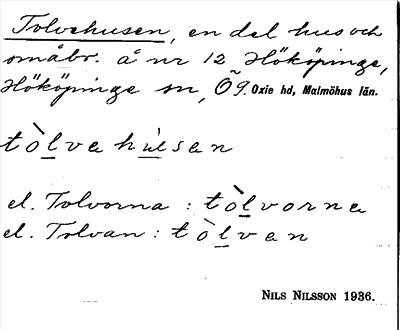 Tolvehusen, en del hus och
småbr. å nr 12 Hököpinge,
Hököpinge sn, Ö9. Oxie hd, Malmöhus län.
tòlvehusen
el. Tolvorna : tòlvorna
el. Tolvan : tòlvan
NILS NILSSON 1936.